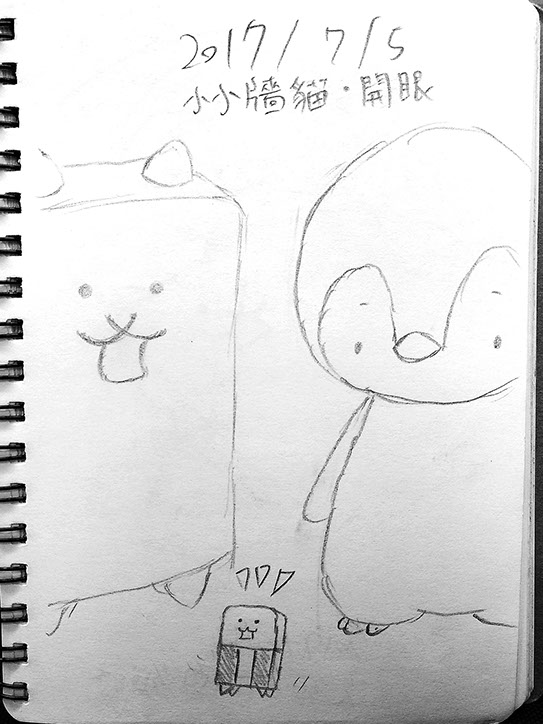 2017/7/5
小小牆貓·開眼